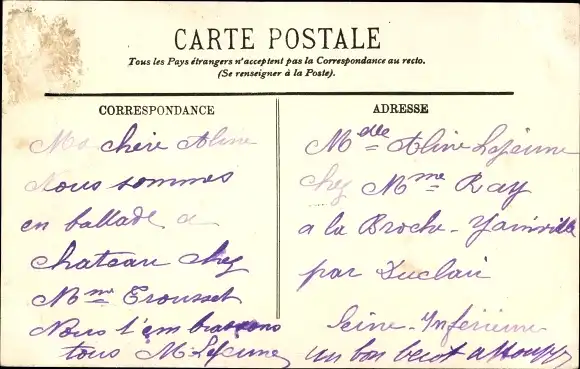 CARTE POSTALE
Tous les Pays étrangers n'acceptent pas la Correspondance au recto.
(Se renseigner à la Poste).
CORRESPONDANCE
Ma chère Aline
Nous sommes
en ballade a
chateau chez
Mme Trousset
Nous t'embrassons
tous M Lejeune
ADRESSE
Mdelle Aline Lejeune
chez Mme Ray
a la Broche-Yainville
par Duclair
Seine-Inférieure
un bon becot a